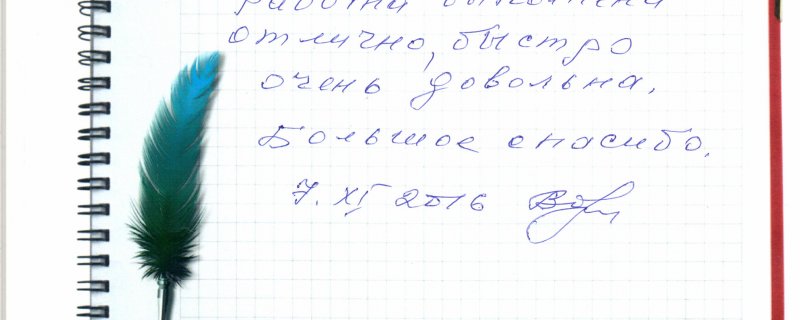 отлично, быстро
очень довольна.
Большое спасибо.
7. XI 2016